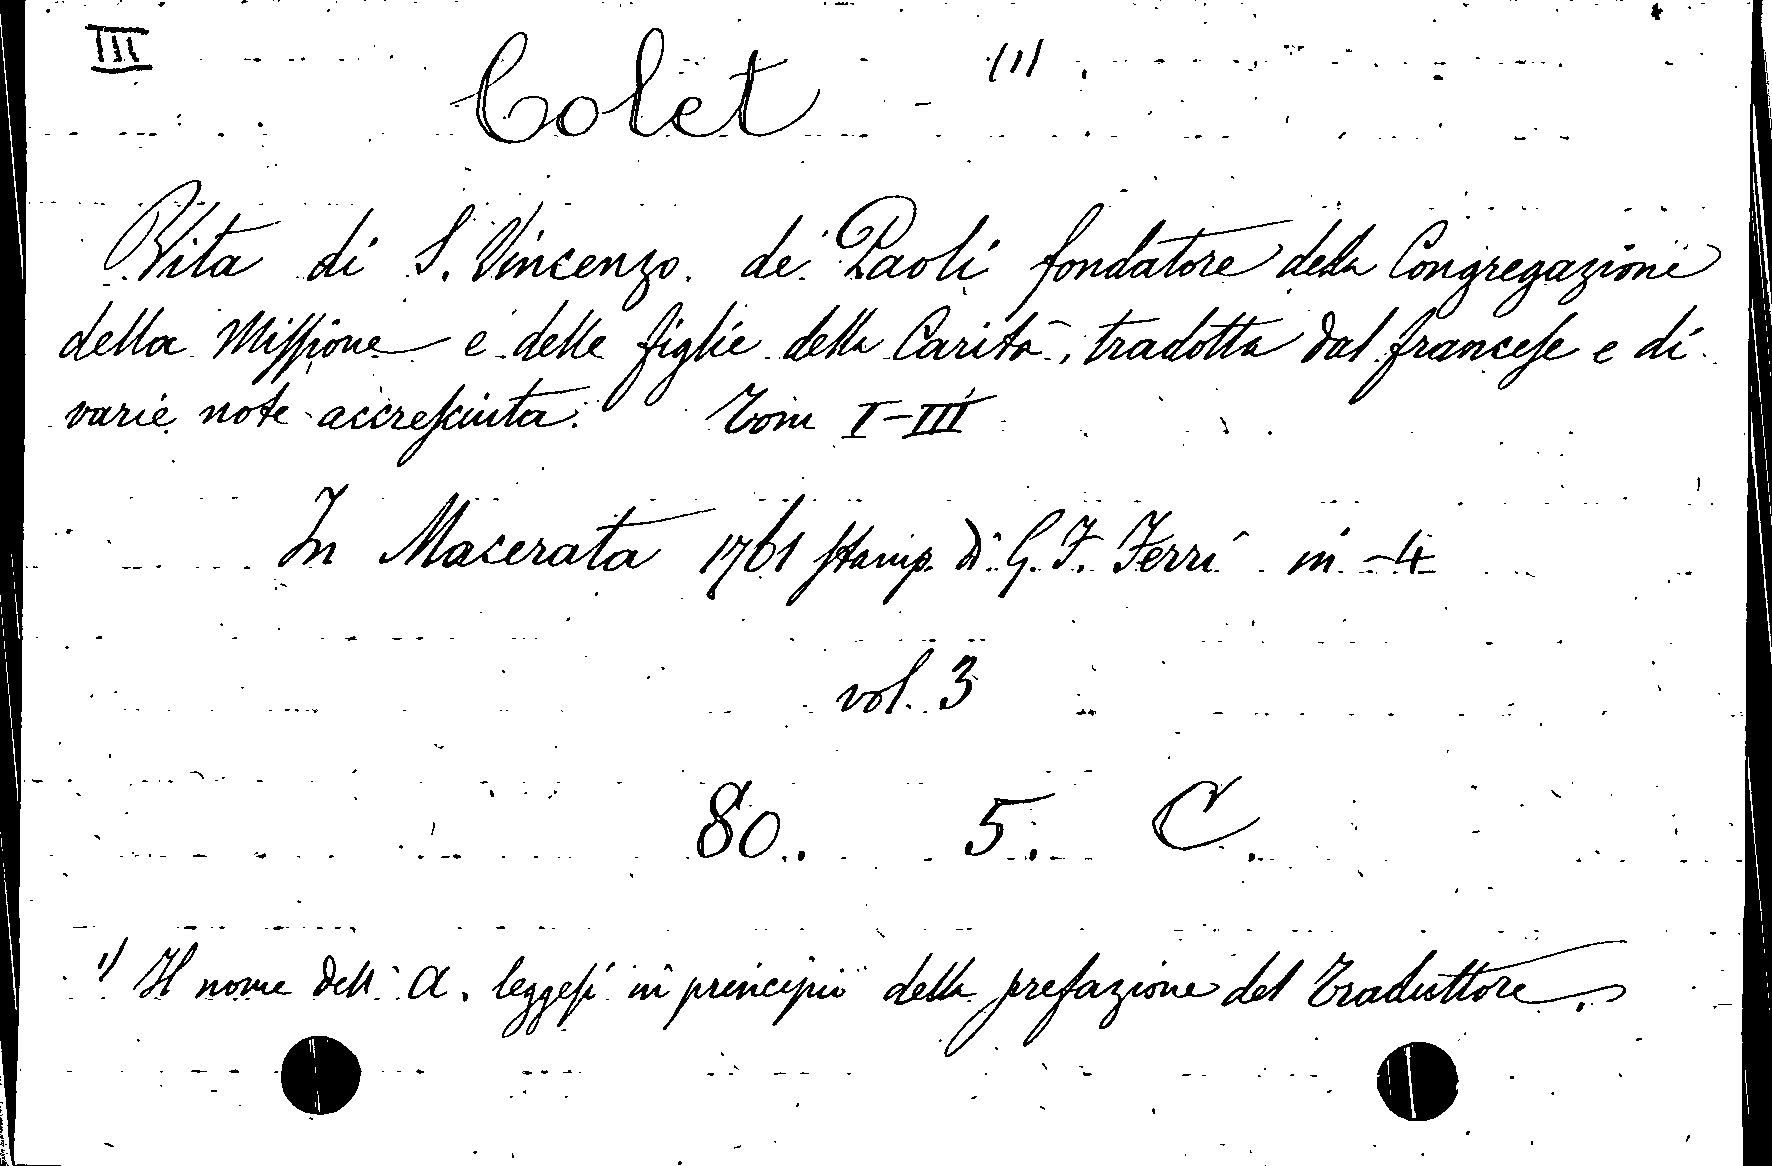 III
Colet (1)
Vita di S. Vincenzo de' Paoli fondatore della Congregazione
della Missione e delle figlie della Carità, tradotta dal francese e di
varie note accresciuta. Tom I-III
In Macerata 1761 stamp. di G. F. Ferri in -4
vol. 3
80. 5. C.
1) Il nome dell' A. leggesi in principio della prefazione del Traduttore.